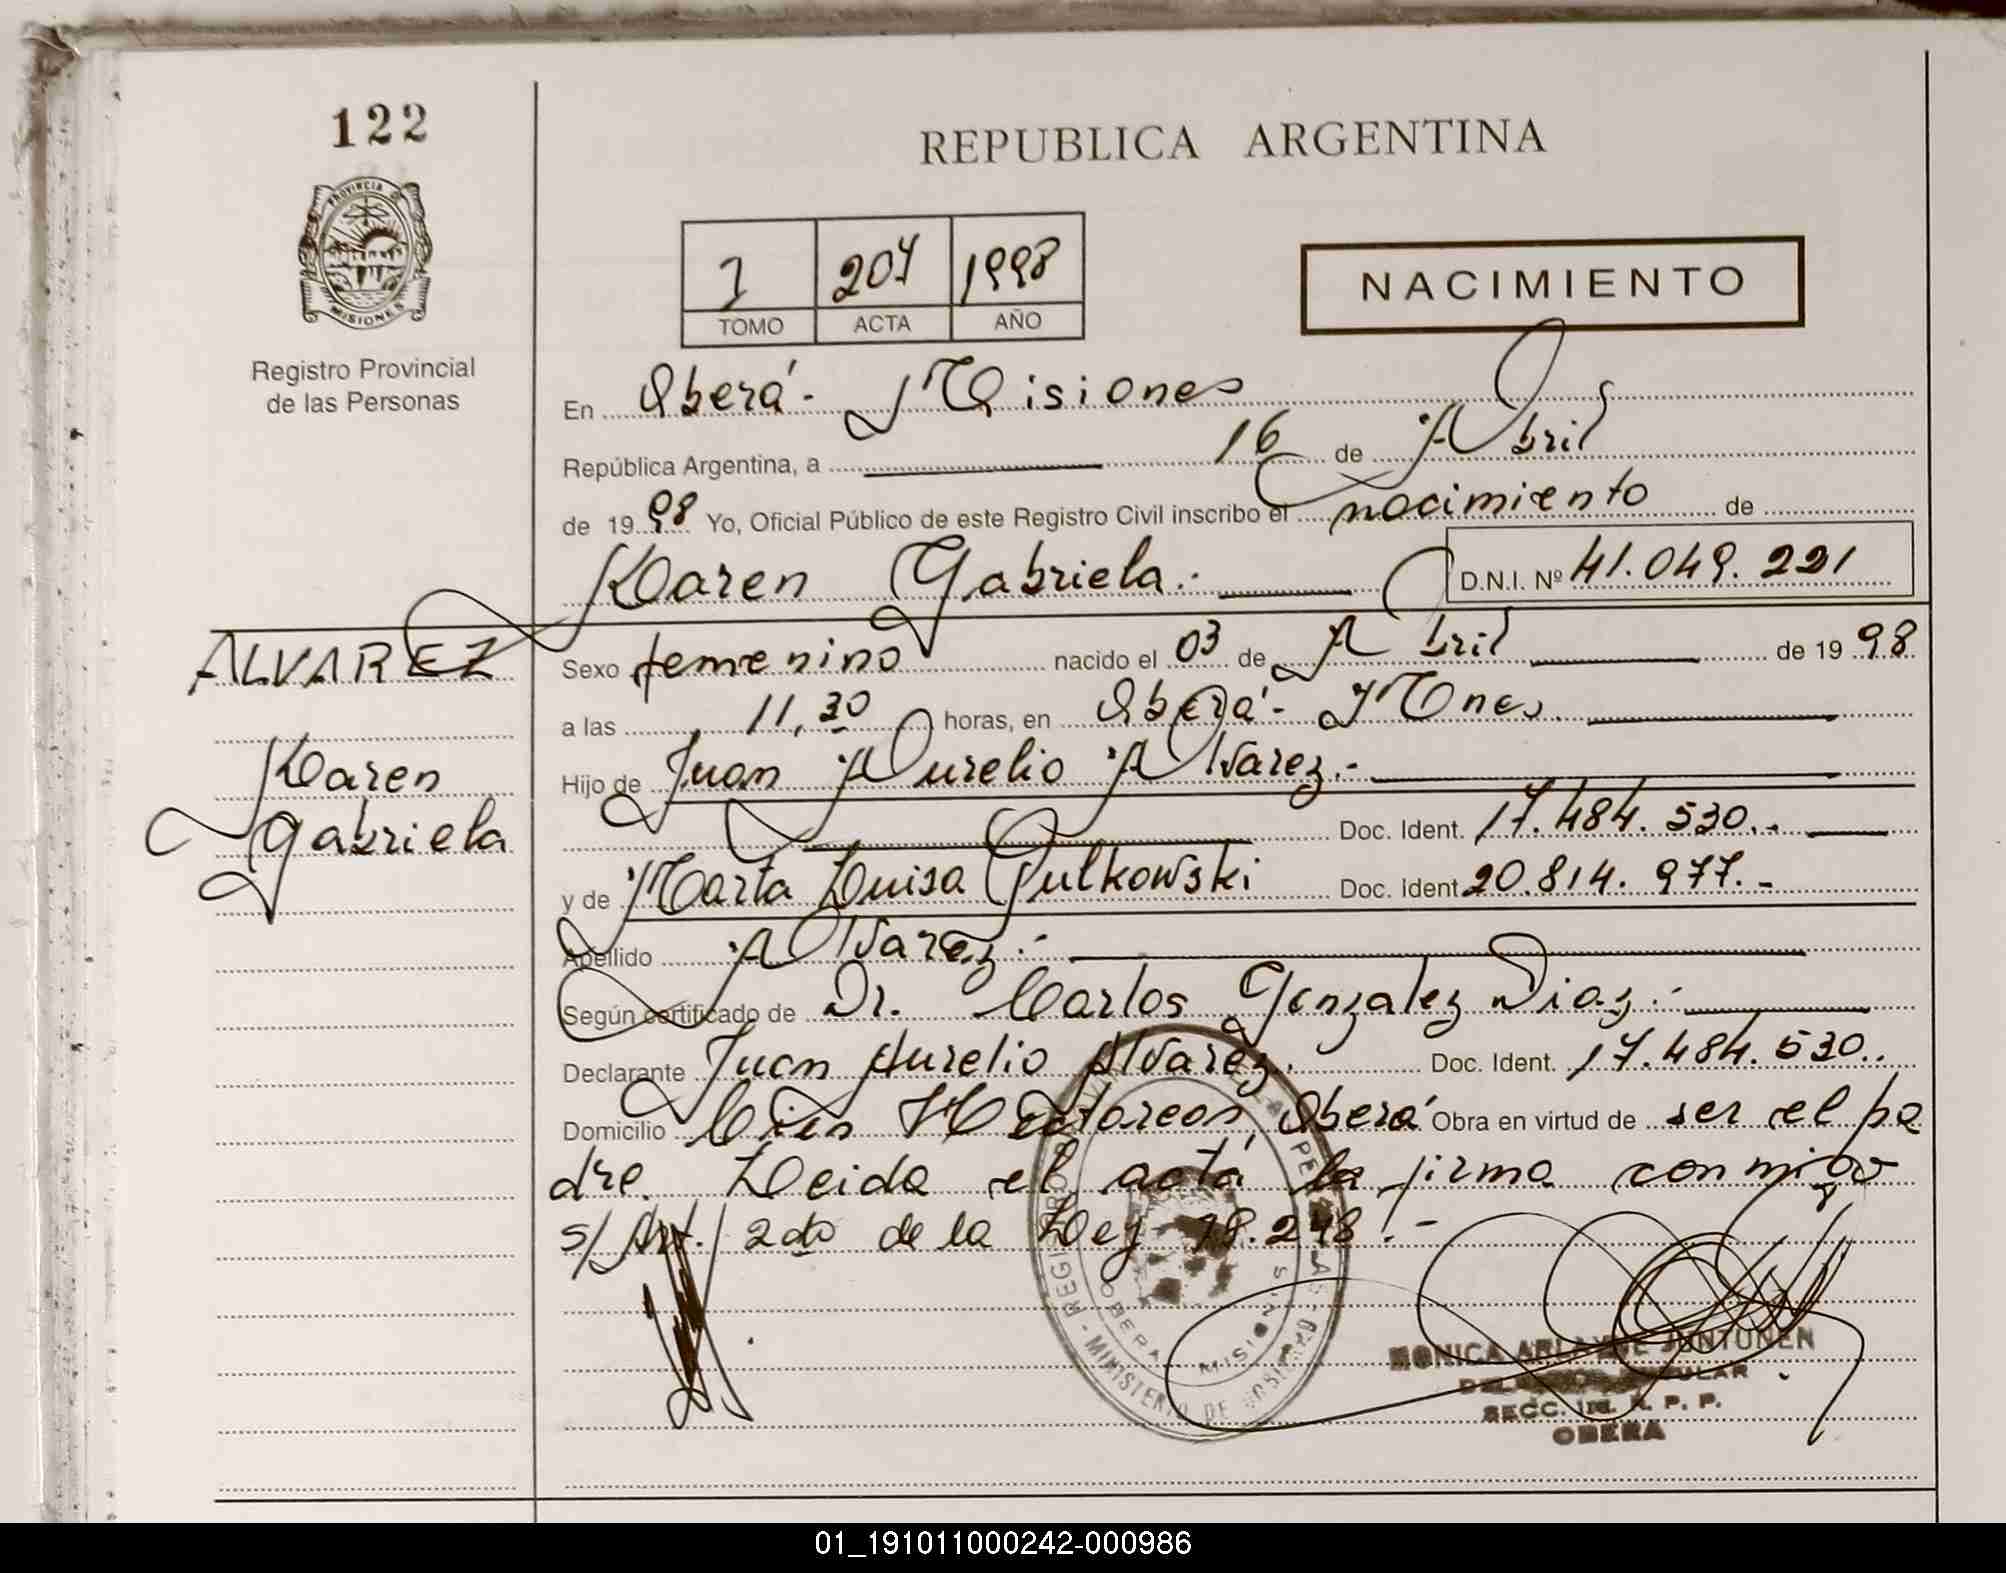 122
PROVINCIA DE
MISIONES
Registro Provincial
de las Personas
REPUBLICA ARGENTINA
1 207 1998
TOMO ACTA AÑO
NACIMIENTO
En Oberá - Misiones
República Argentina, a 16 de Abril
de 1998 Yo, Oficial Público de este Registro Civil inscribo el nacimiento de
Karen Gabriela.- D.N.I. Nº 41.049.221
ALVAREZ
Karen
Gabriela
Sexo femenino nacido el 03 de Abril de 1998
a las 11,30 horas, en Oberá - Mnes.
Hijo de Juan Aurelio Alvarez.-
Doc. Ident. 17.484.530.-
y de Marta Luisa Gutkowski Doc. Ident 20.814.977.-
Apellido Alvarez.-
Según certificado de Dr. Carlos Gonzalez Diaz.-
Declarante Juan Aurelio Alvarez. Doc. Ident. 17.484.530..
Domicilio Cien Hectareas Oberá Obra en virtud de ser el pa
dre. Leida el acta la firma conmigo
s/ Art. 2do de la Ley 18.248.-
MINISTERIO DE
OBERA MISIONES
MONICA JUNTUNEN
SECC. R. P. P.
OBERA
01_191011000242-000986